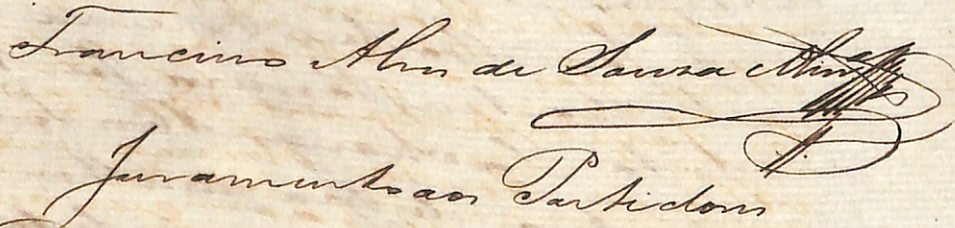 Francino Alves de Souza
Juramento aos Partidores